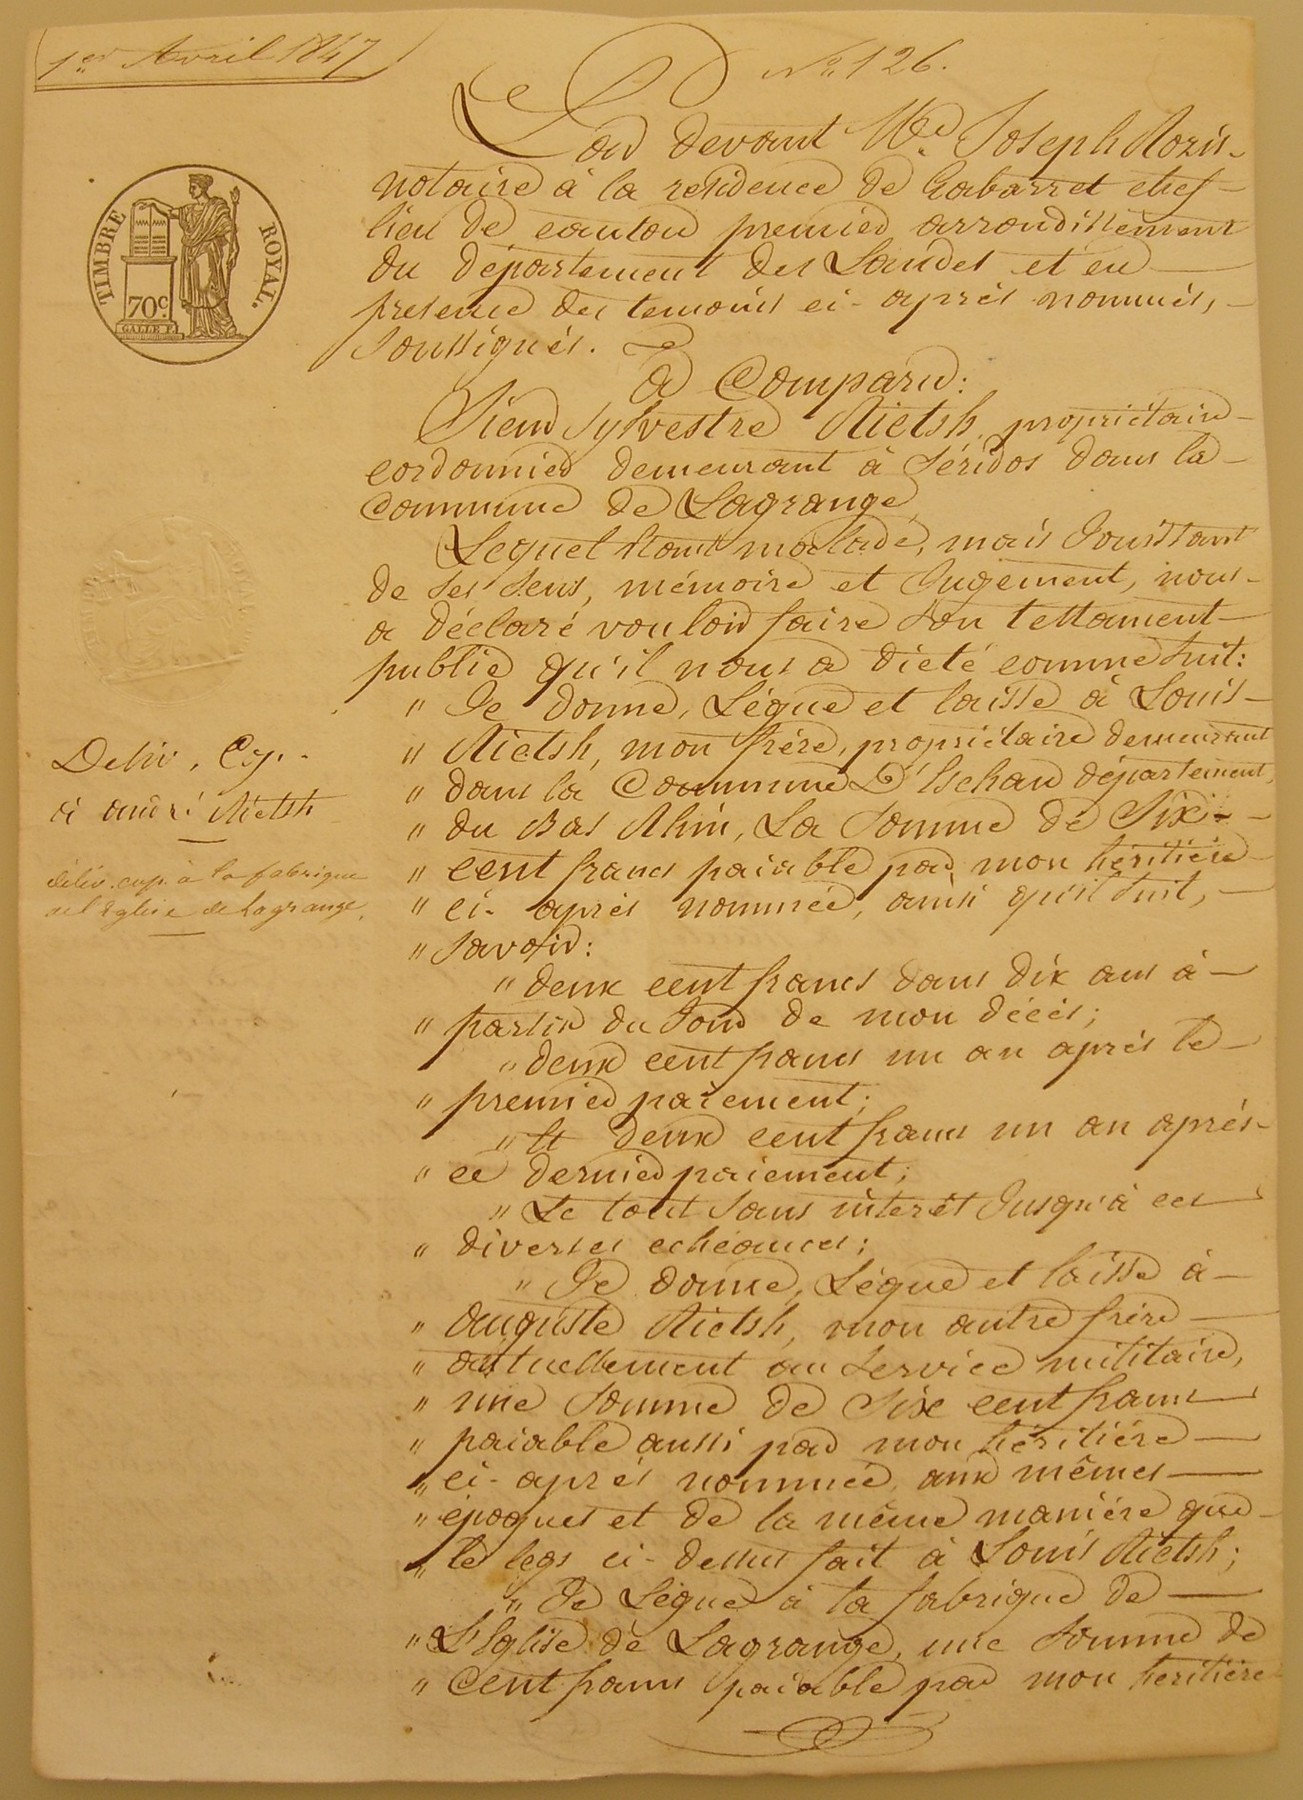 1er Avril 1847
No. 126.
TIMBRE ROYAL.
70c.
GALLE F.
Par devant Me Joseph Rozis
notaire à la residence de Gabarret chef
lieu de canton premier arrondissement
du département des Landes et en
presence des temoins ci-après nommés,
soussignés.
A Comparu:
Sieur Sylvestre Rietsh, propriétaire
cordonnier demeurant à Séridos dans la
commune de Lagrange,
Lequel étant malade, mais Jouissant
de ses sens, mémoire et Jugement, nous
a déclaré vouloir faire son testament
public qu'il nous a dicté comme suit:
" Je donne, Légue et laisse à Louis
" Rietsh, mon frére, propriétaire demeurant
" dans la Commune D' département
" du Bas Rhin, La somme de Six
" cent francs paiable par mon héritiére
" ci-après nommée, ainsi qu'il suit,
" savoir:
" deux cent francs dans dix ans à
" partir du Jour de mon décès;
" deux cent francs un an après le
" premier paiement;
" Et deux cent francs un an après
" ce dernier paiement;
" Le tout sans interêt Jusqu'à ces
" diverses echéances;
" Je donne, Légue et laisse à
" auguste Rietsh, mon autre frére
" actuellement au service militaire,
" une somme de Six cent francs
" paiable aussi par mon héritiére
" ci-après nommée, aux mêmes
" époques et de la même maniére que
" le legs ci-dessus fait à Louis Rietsh;
" Je Légue à la fabrique de
" L'Eglise de Lagrange, une somme de
" Cent francs paiable par mon heritière
Deliv. Cop.
à andré Rietsh
déliv. cop. à la fabrique
de l'Eglise de Lagrange.